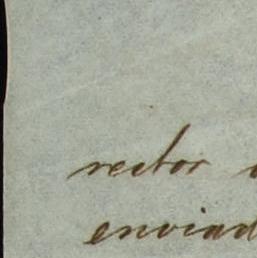 rector
enviad